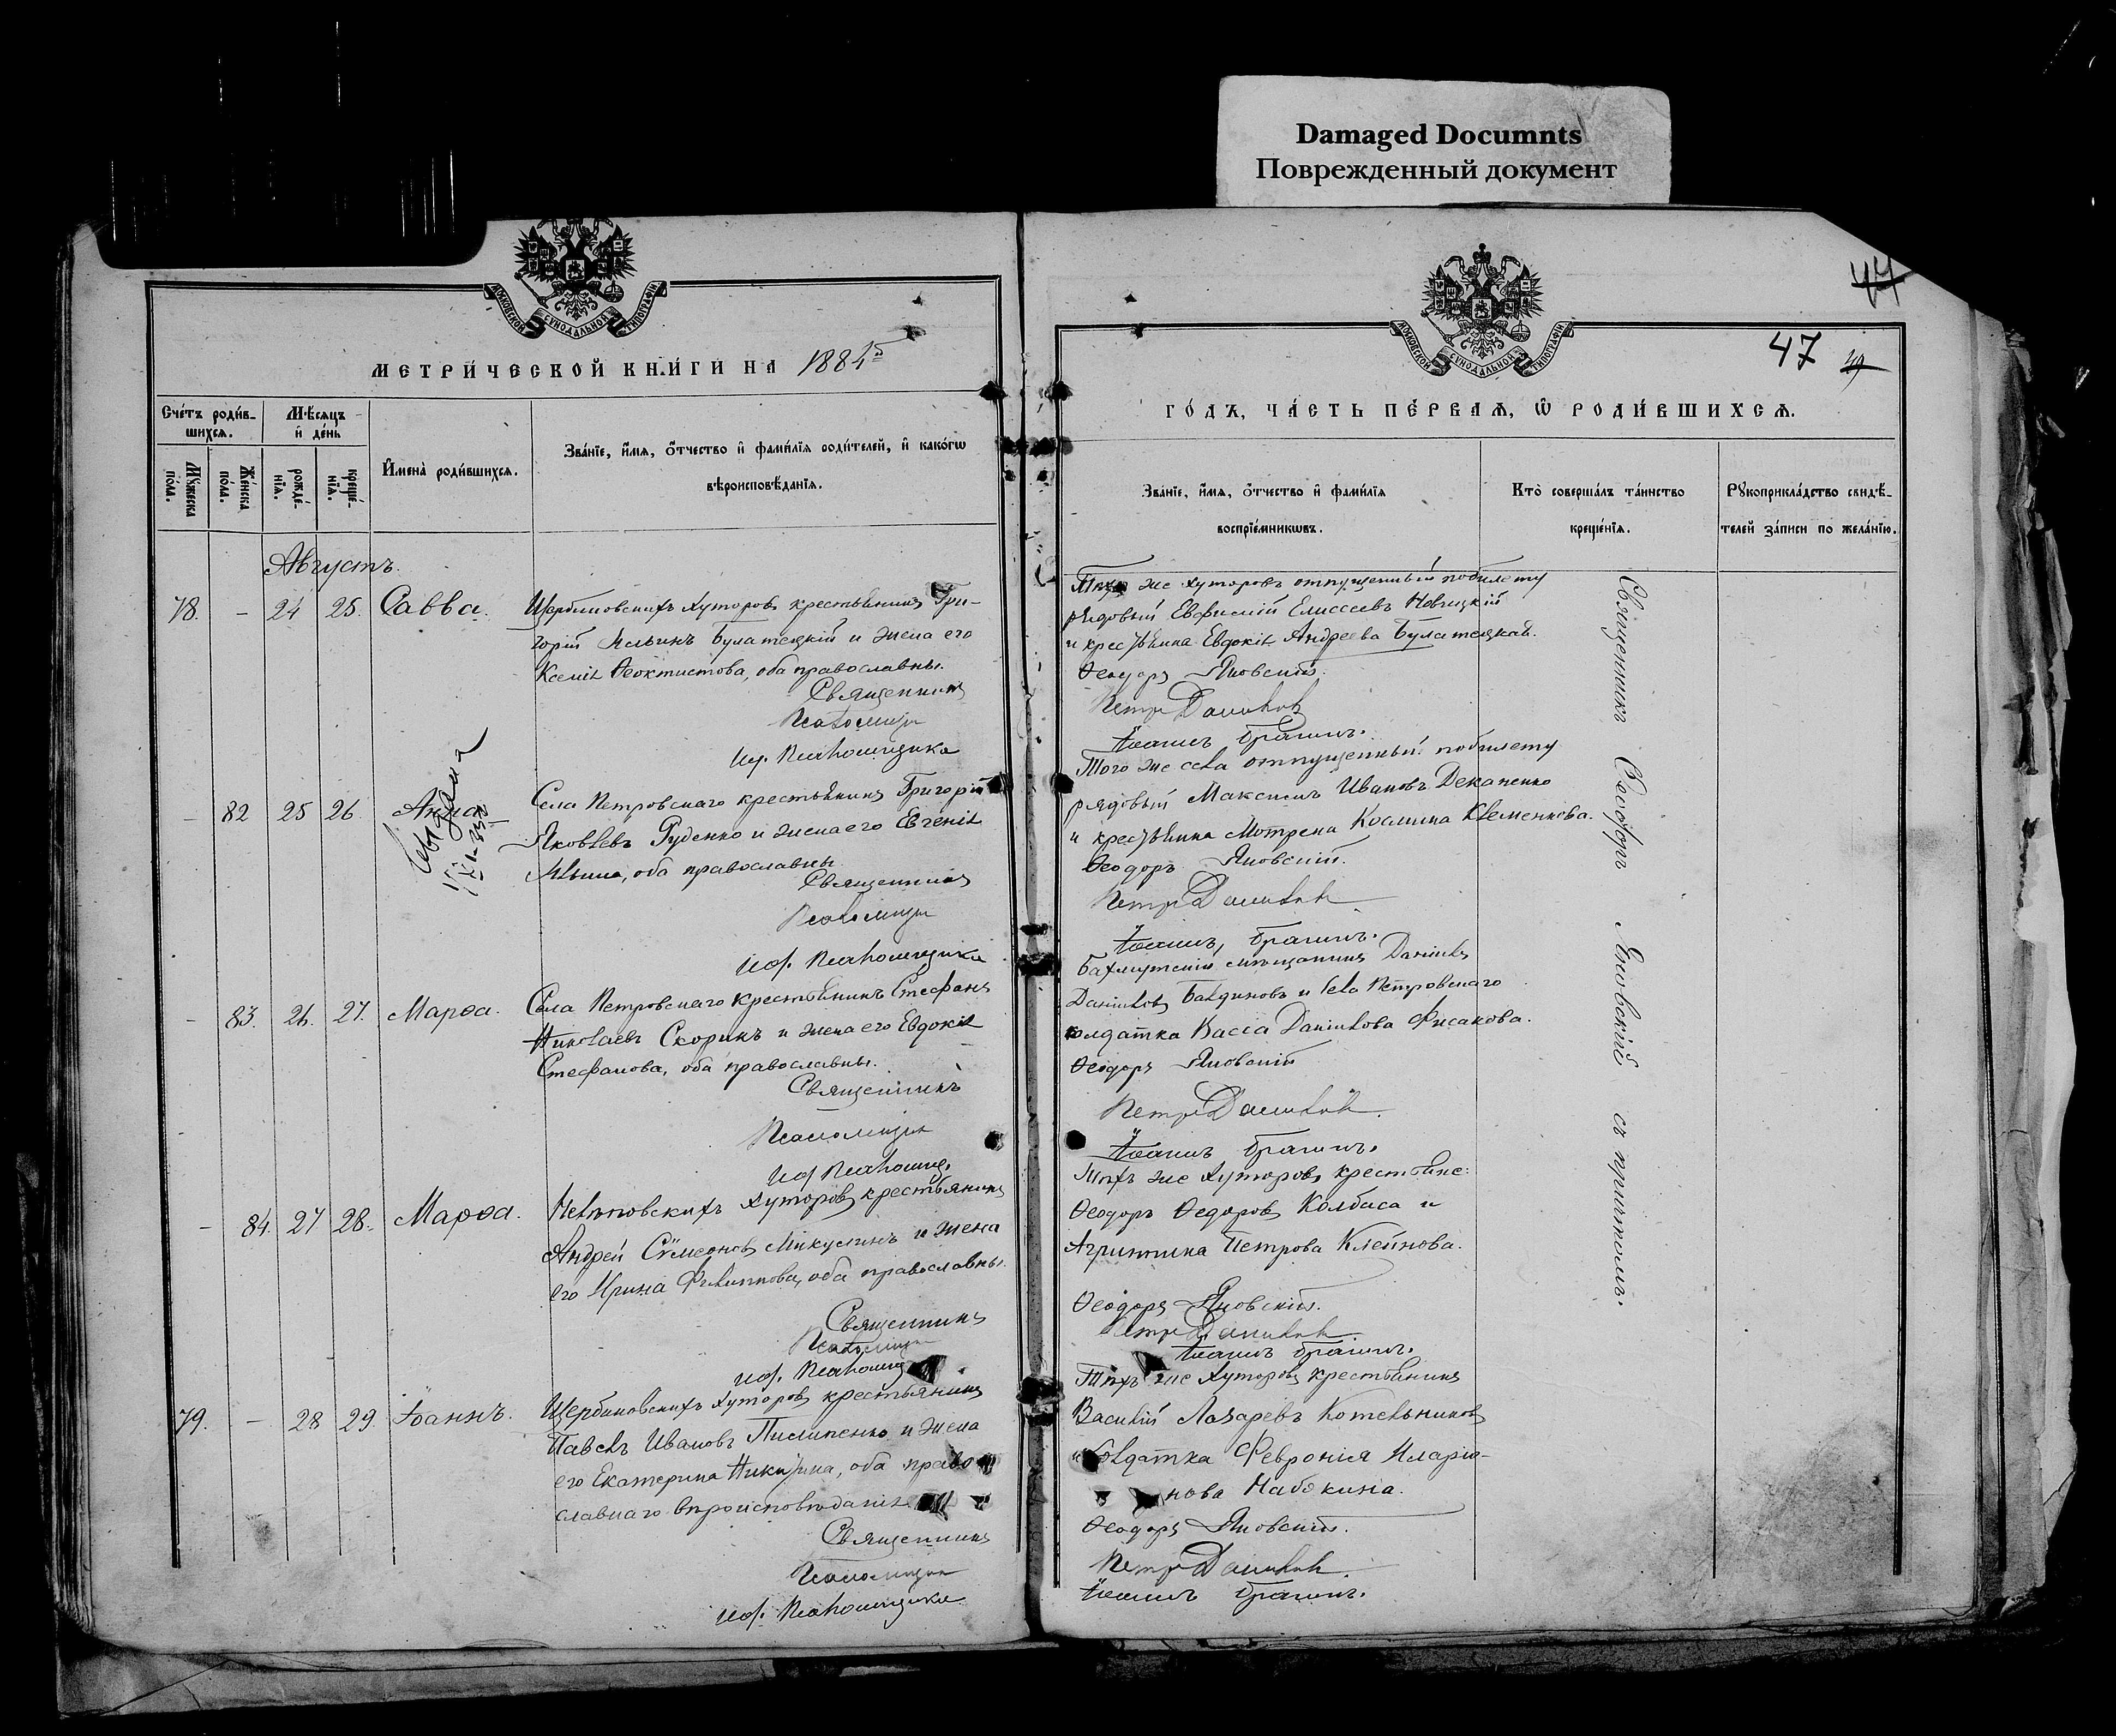 Damaged Documnts
Поврежденный документ
МОСКОВСКОЙ СѴНОДАЛЬНОЙ ТИПОГРАФІИ
МЕТРИ́ЧЕСКОЙ КНИ́ГИ НА 1885
Сче́тъ роди́в-
шихсѧ.
Мѣ́сѧцъ
и҆ де́нь
Мꙋ́жеска
по́ла.
Же́нска
по́ла.
рожде́-
нїѧ.
креще́-
нїѧ.
И҆мена̀ роди́вшихсѧ.
Зва́нїе, и҆́мѧ, ѻ҆́тчество и҆ фами́лїѧ роди́телей, и҆ како́гѡ
вѣроисповѣ́данїѧ.
Августъ.
78. – 24 25. Савва.
Щербиновскихъ Хуторовъ крестьянинъ Гри-
горій Ильинъ Булатецкій и жена его
Ксенія Ѳеоктистова, оба православны.
Священникъ
Псаломщикъ
И. д. Псаломщика
– 82 25 26. Анна
Села Петровскаго крестьянинъ Григорій
Яковлевъ Руденко и жена его Евгенія
Ильина, оба православны.
Священникъ
Псаломщикъ
И. д. Псаломщика
– 83. 26. 27. Марѳа.
Села Петровскаго крестьянинъ Стефанъ
Николаевъ Скоринъ и жена его Евдокія
Стефанова, оба православны.
Священникъ
Псаломщикъ
И. д. Псаломщ.
– 84. 27 28. Марѳа.
Хуторовъ крестьянинъ
Андрей Сѵмеоновъ Микулинъ и жена
его Ирина Филиппова, оба православны.
Священникъ
Псаломщикъ
И. д. Псаломщ
79. – 28 29. Іоаннъ.
Щербиновскихъ Хуторовъ крестьянинъ
Павелъ Ивановъ Пилипенко и жена
его Екатерина Никитина, оба право
славнаго вѣроисповѣданія
Священникъ
Псаломщикъ
И. д. Псаломщика
44
47
49
МОСКОВСКОЙ СѴНОДАЛЬНОЙ ТИПОГРАФІИ
ГО́ДЪ, ЧА́СТЬ ПЕ́РВАѦ, Ѽ РОДИ́ВШИХСѦ.
Зва́нїе, и҆́мѧ, ѻ҆́тчество и҆ фами́лїѧ
воспрїе́мникѡвъ.
Кто̀ соверша́лъ та́инство
креще́нїѧ.
Рꙋкоприкла́дство свидѣ́-
телей за́писи по жела́нїю.
Тѣхъ же хуторовъ отпущенный по билету
рядовый Евфимій Елисеевъ Новицкій
и крестьянка Евдокія Андреева Булатецкая.
Ѳеодоръ Яновскій.
Петръ Даниловъ
Іоаннъ Брагинъ.
Того же села отпущенный по билету
рядовый Максимъ Ивановъ Деканенко
и крестьянка Мотрена Космина Клеменкова.
Ѳеодоръ Яновскій.
Петръ Даниловъ
Іоаннъ Брагинъ.
Бахмутскій мѣщанинъ Даніилъ
Даніиловъ Балдиновъ и села Петровскаго
солдатка Васса Даніилова Фисакова.
Ѳеодоръ Яновскій
Петръ Даниловъ
Іоаннъ Брагинъ.
Тѣхъ же Хуторовъ крестьяне:
Ѳеодоръ Ѳедоровъ Колбаса и
Агриппина Петрова Клейнова.
Ѳеодоръ Яновскій.
Петръ Даниловъ
Іоаннъ Брагинъ.
Тѣхъ же Хуторовъ крестьянинъ
Василій Лазаревъ Котельниковъ
и солдатка Февронія Иларіо-
нова Набокина.
Ѳеодоръ Яновскій.
Петръ Даниловъ
Іоаннъ Брагинъ.
Священникъ Ѳеодоръ Яновскій съ причтомъ.